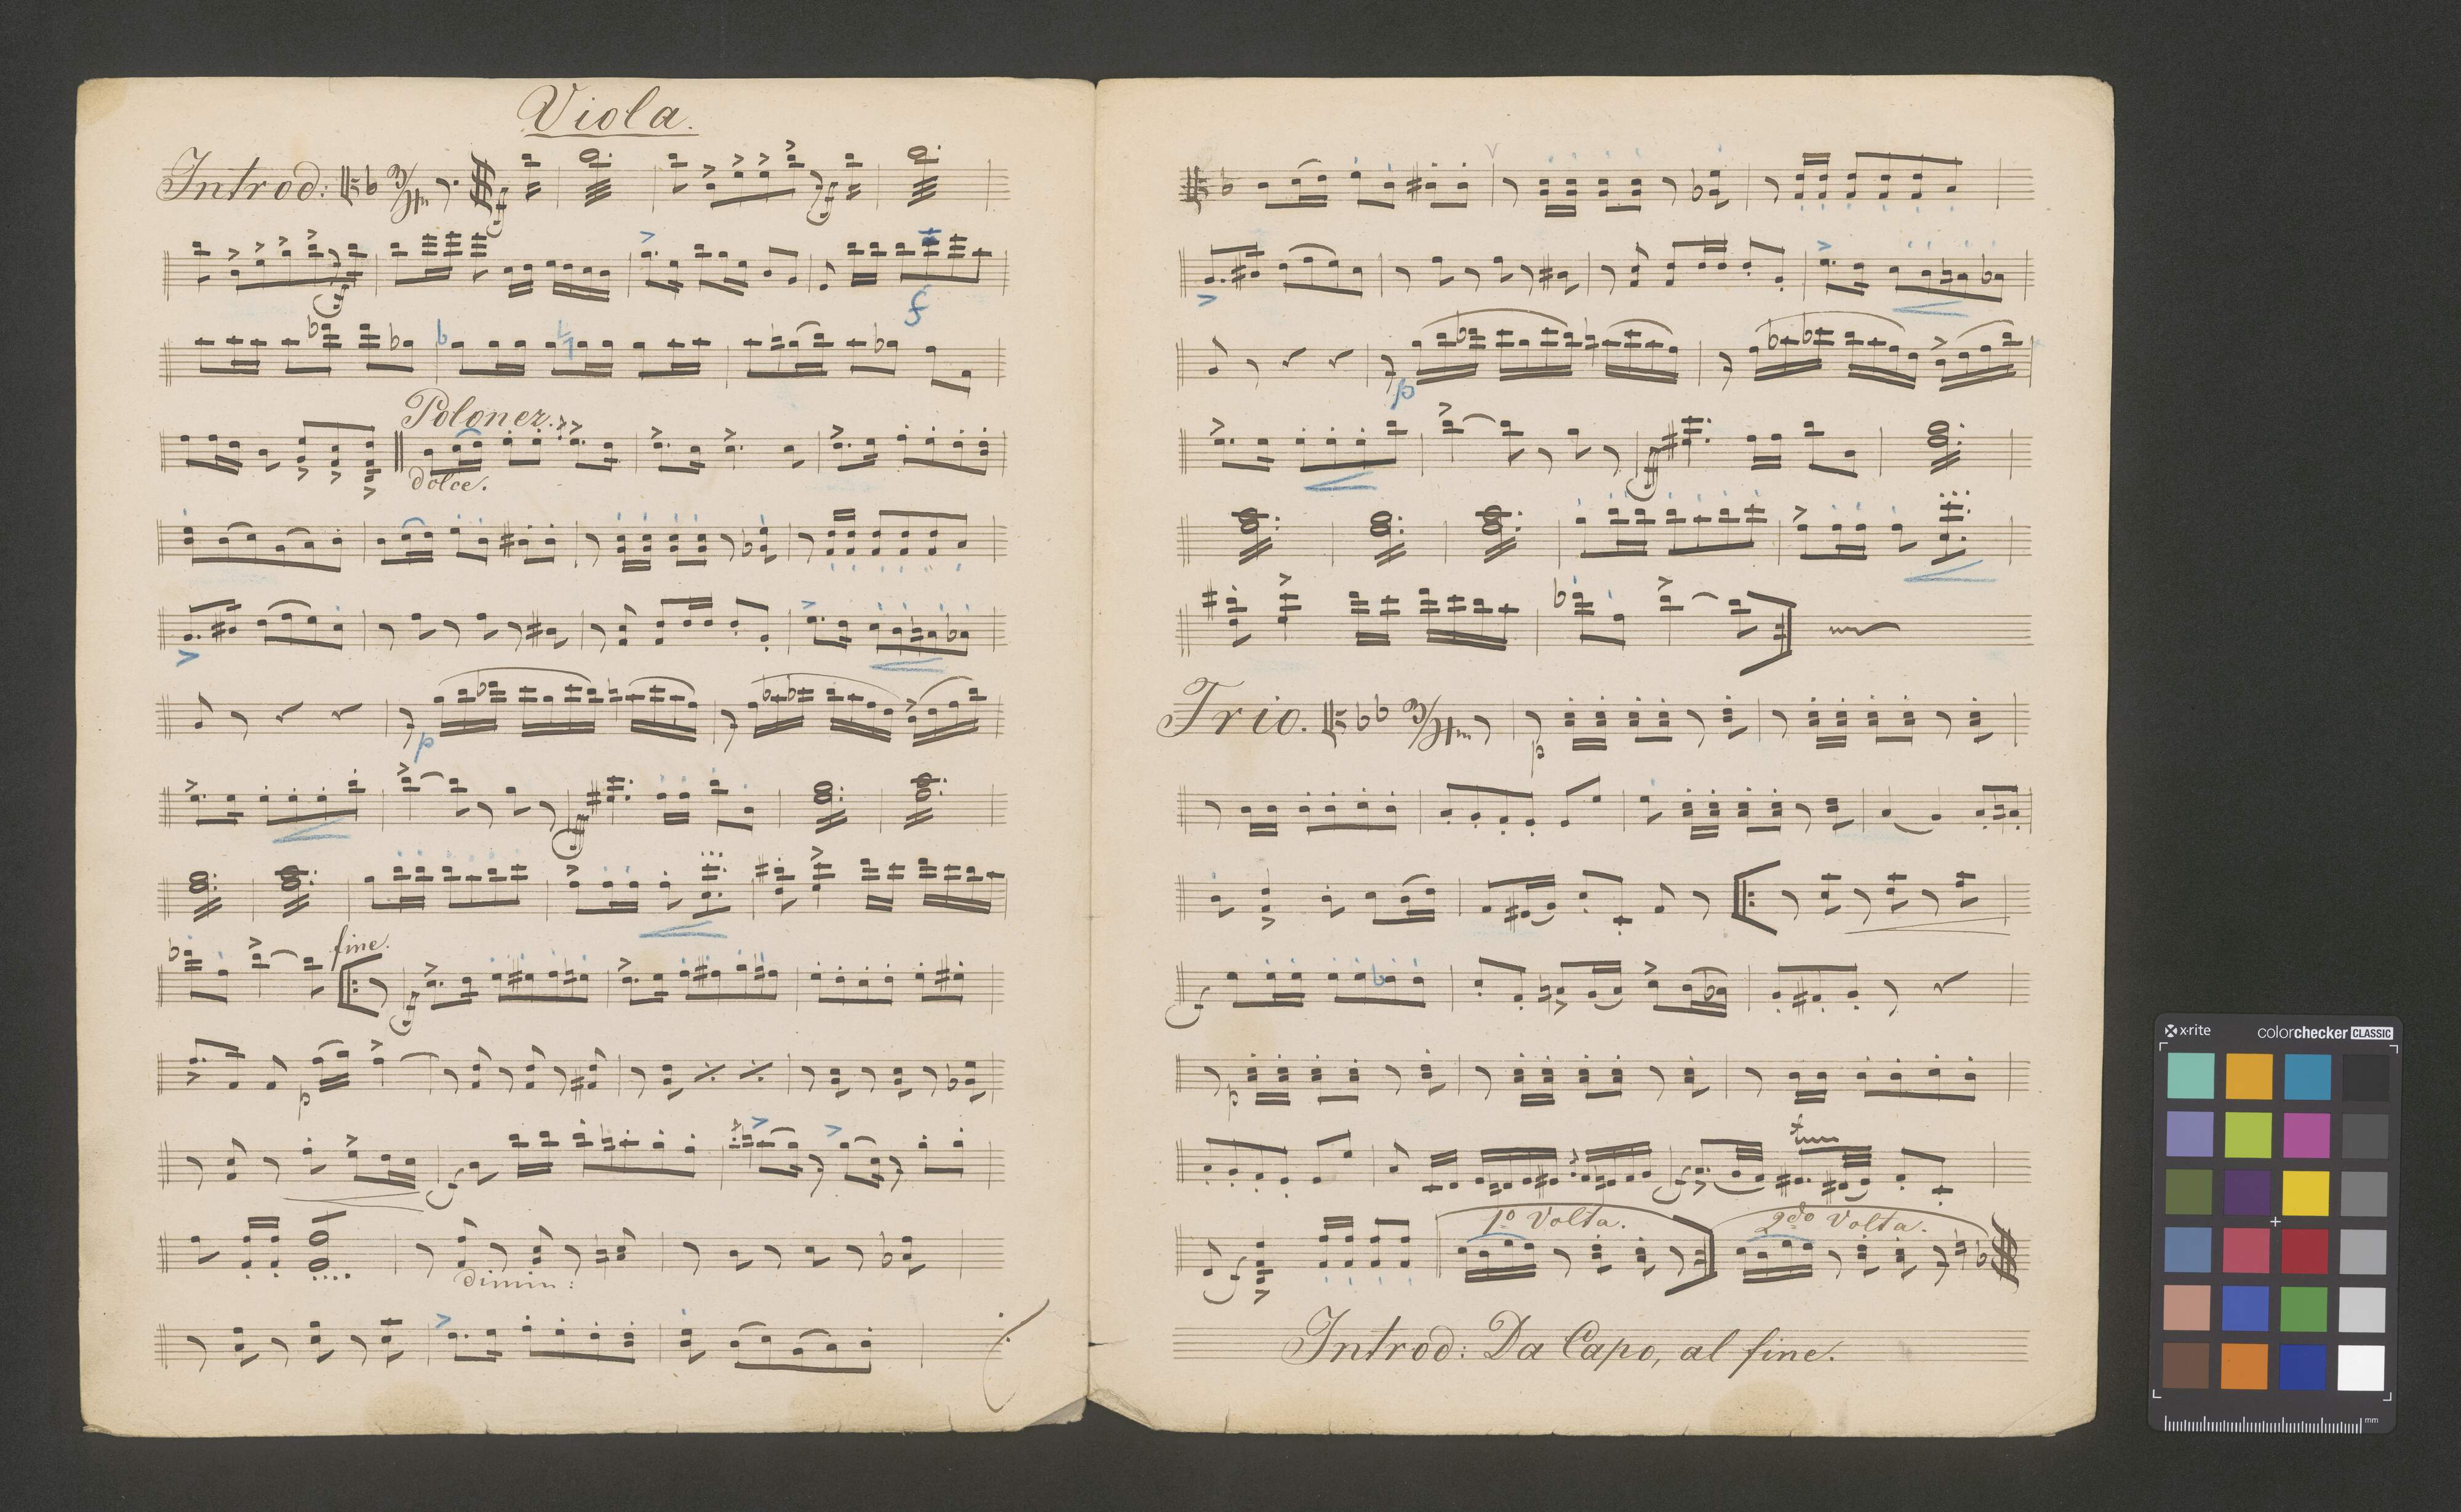 Viola.
Introd: 3/4 f f
f
f
Polonez.
dolce.
p
f
fine.
f
p
f
dimin:
p
f
Trio. 3/4
p
f
p
tr
f
1º Volta. 2do Volta.
f
Introd: Da Capo, al fine.
x-rite colorchecker CLASSIC
mm